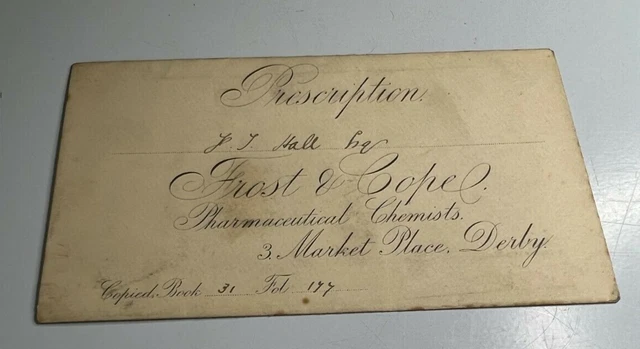 Prescription.
J. T. Hall Esq
Frost & Cope.
Pharmaceutical Chemists.
3. Market Place, Derby.
Copied, Book 31 Fol 177